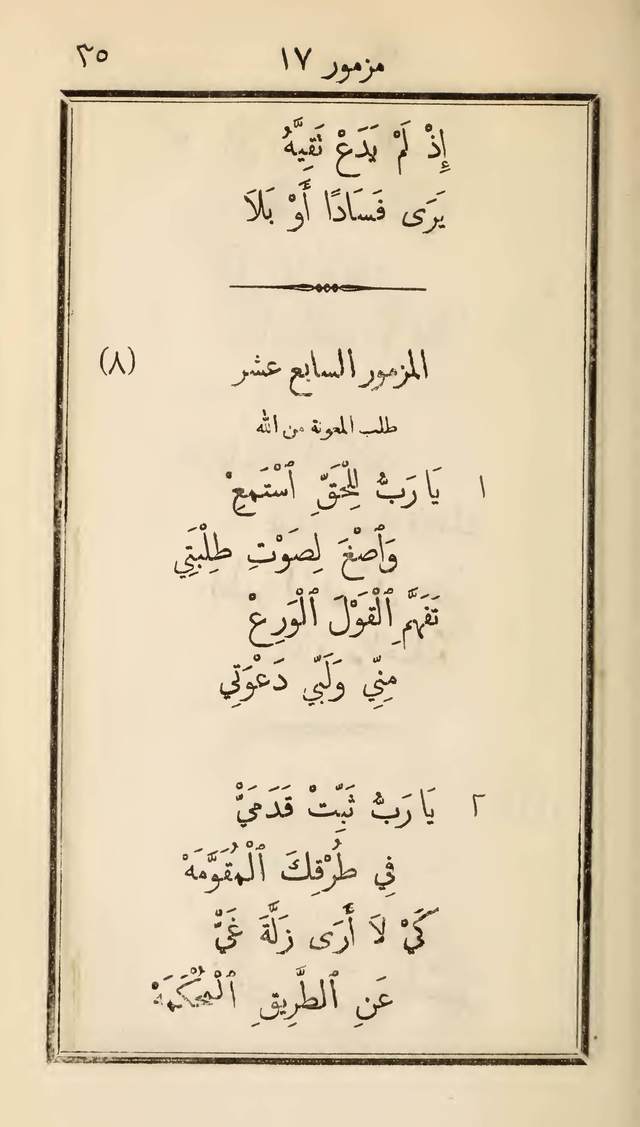 مزمور ١٧ ٣٥
إِذْ لَمْ يَدَعْ تَقِيَّهُ
يَرَى فَسَادًا أَوْ بَلَا
المزمور السابع عشر (٨)
طلب المعونة من الله
١ يَا رَبُّ لِلْحَقِّ ٱسْتَمِعْ
وَٱصْغَ لِصَوْتِ طِلْبَتِي
تَفَهَّمِ ٱلْقَوْلَ ٱلْوَرِعْ
مِنِّي وَلَبِّي دَعْوَتِي
٢ يَا رَبُّ ثَبِّتْ قَدَمَيّْ
فِي طُرْقِكَ ٱلْمُقَوَّمَهْ
كَيْ لَا أَرَى زَلَّةَ غَيّْ
عَنِ ٱلطَّرِيقِ ٱلْمُحْكَمَهْ